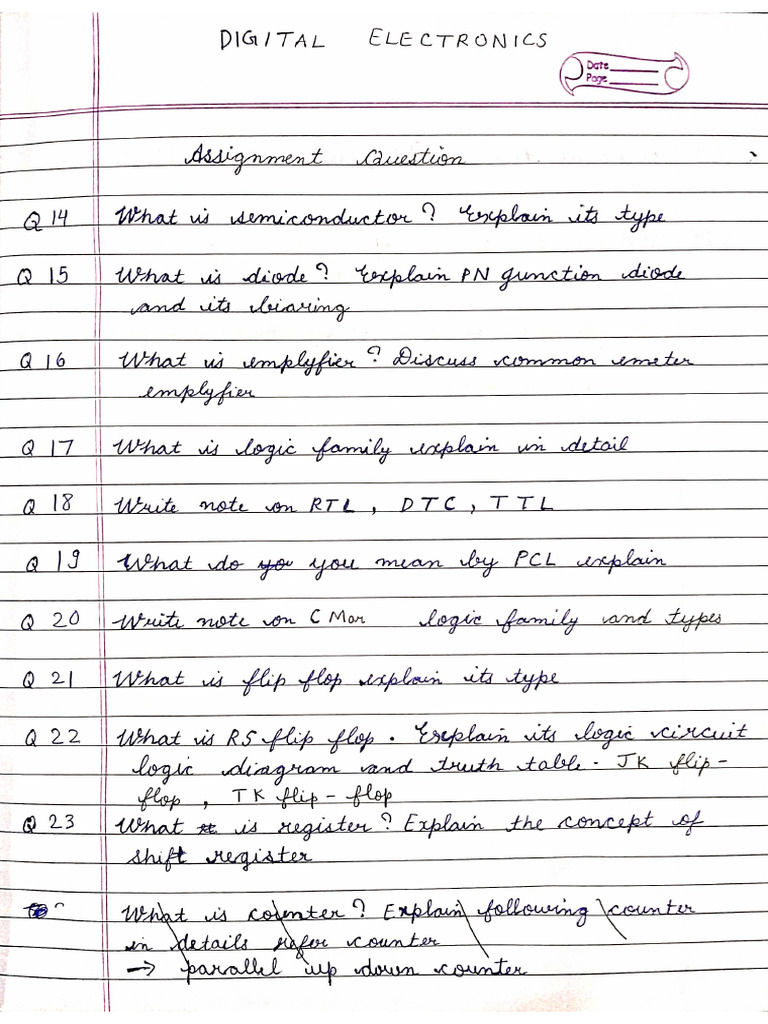 DIGITAL ELECTRONICS
Date
Page
Assignment Question
Q 14 What is semiconductor? Explain its type
Q 15 What is diode? Explain PN gunction diode
and its biaring
Q 16 What is emplyfier? Discuss common emeter
emplyfier
Q 17 What is logic family explain in detail
Q 18 Write note on RTL, DTC, TTL
Q 19 What do you you mean by PCL explain
Q 20 Write note on C Mar logic family and types
Q 21 What is flip flop explain its type
Q 22 What is RS flip flop. Explain its logic circuit
logic diagram and truth table. JK flip-
flop, TK flip-flop
Q 23 What is register? Explain the concept of
shift register
What is counter? Explain following counter
in details counter
→ parallel up down counter